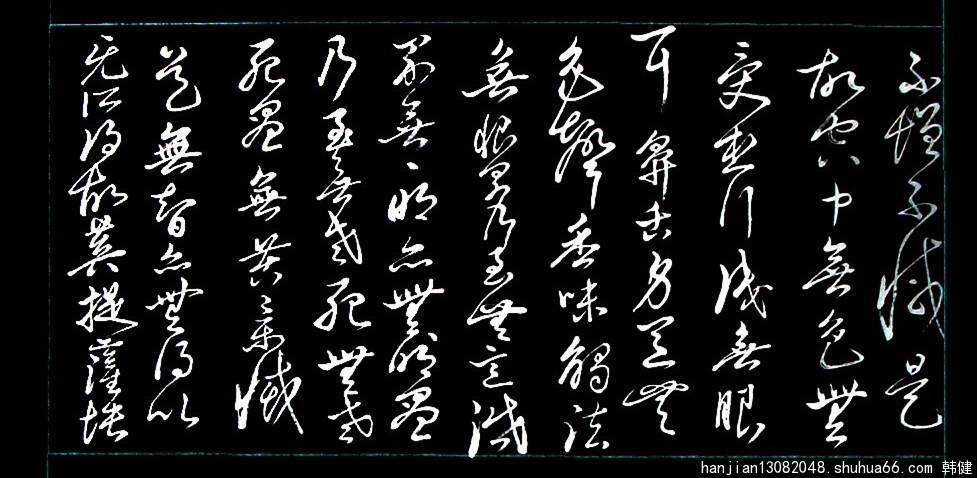 不增不減是
故空中無色無
受想行識無眼
耳鼻舌身意無
色聲香味觸法
無眼界乃至無意識
界無〻明亦無〻明盡
乃至无老死無老
死盡無苦集滅
道無智亦無得以
无所得故菩提薩埵
hanjian13082048.shuhua66.com 韩健